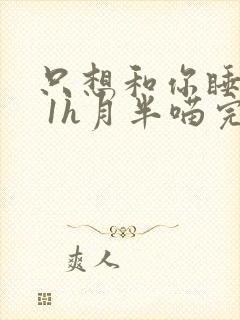 只想和你睡
1h月半喵完
爽人